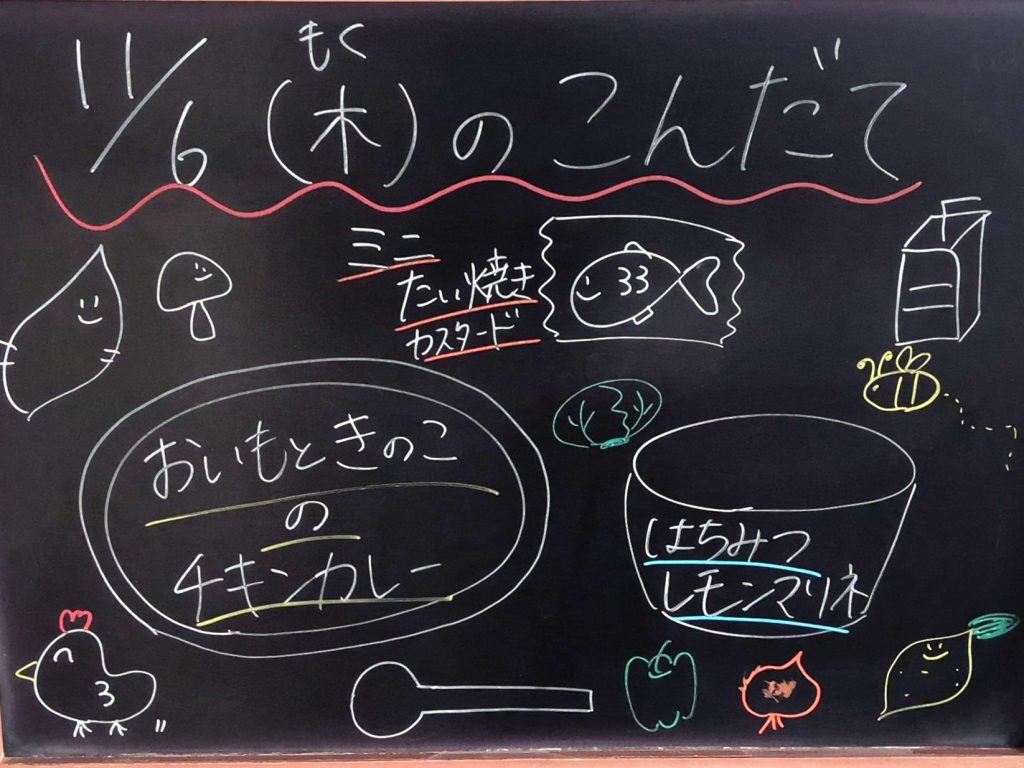 もく
11/6(木)のこんだて
ミニ
たい焼き
カスタード
おいもときのこ
の
チキンカレー
はちみつ
レモンマリネ